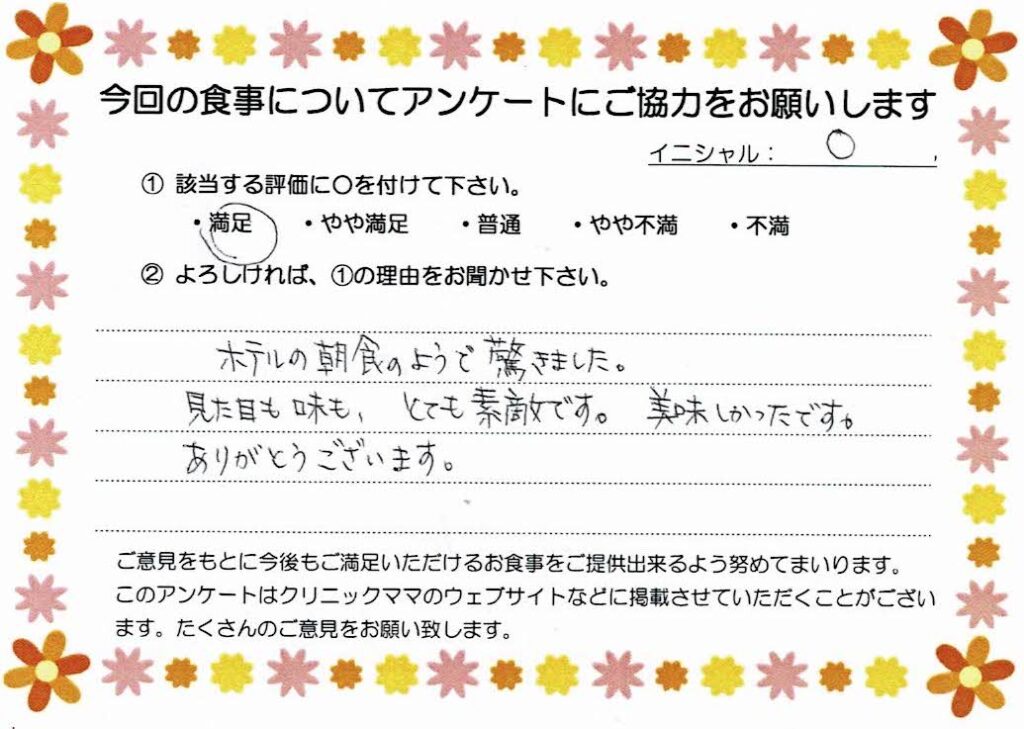 今回の食事についてアンケートにご協力をお願いします
イニシャル： O
① 該当する評価に〇を付けて下さい。
・満足 ・やや満足 ・普通 ・やや不満 ・不満
② よろしければ、①の理由をお聞かせ下さい。
ホテルの朝食のようで驚きました。
見た目も味も、とても素敵です。美味しかったです。
ありがとうございます。
ご意見をもとに今後もご満足いただけるお食事をご提供出来るよう努めてまいります。
このアンケートはクリニックママのウェブサイトなどに掲載させていただくことがござい
ます。たくさんのご意見をお願い致します。